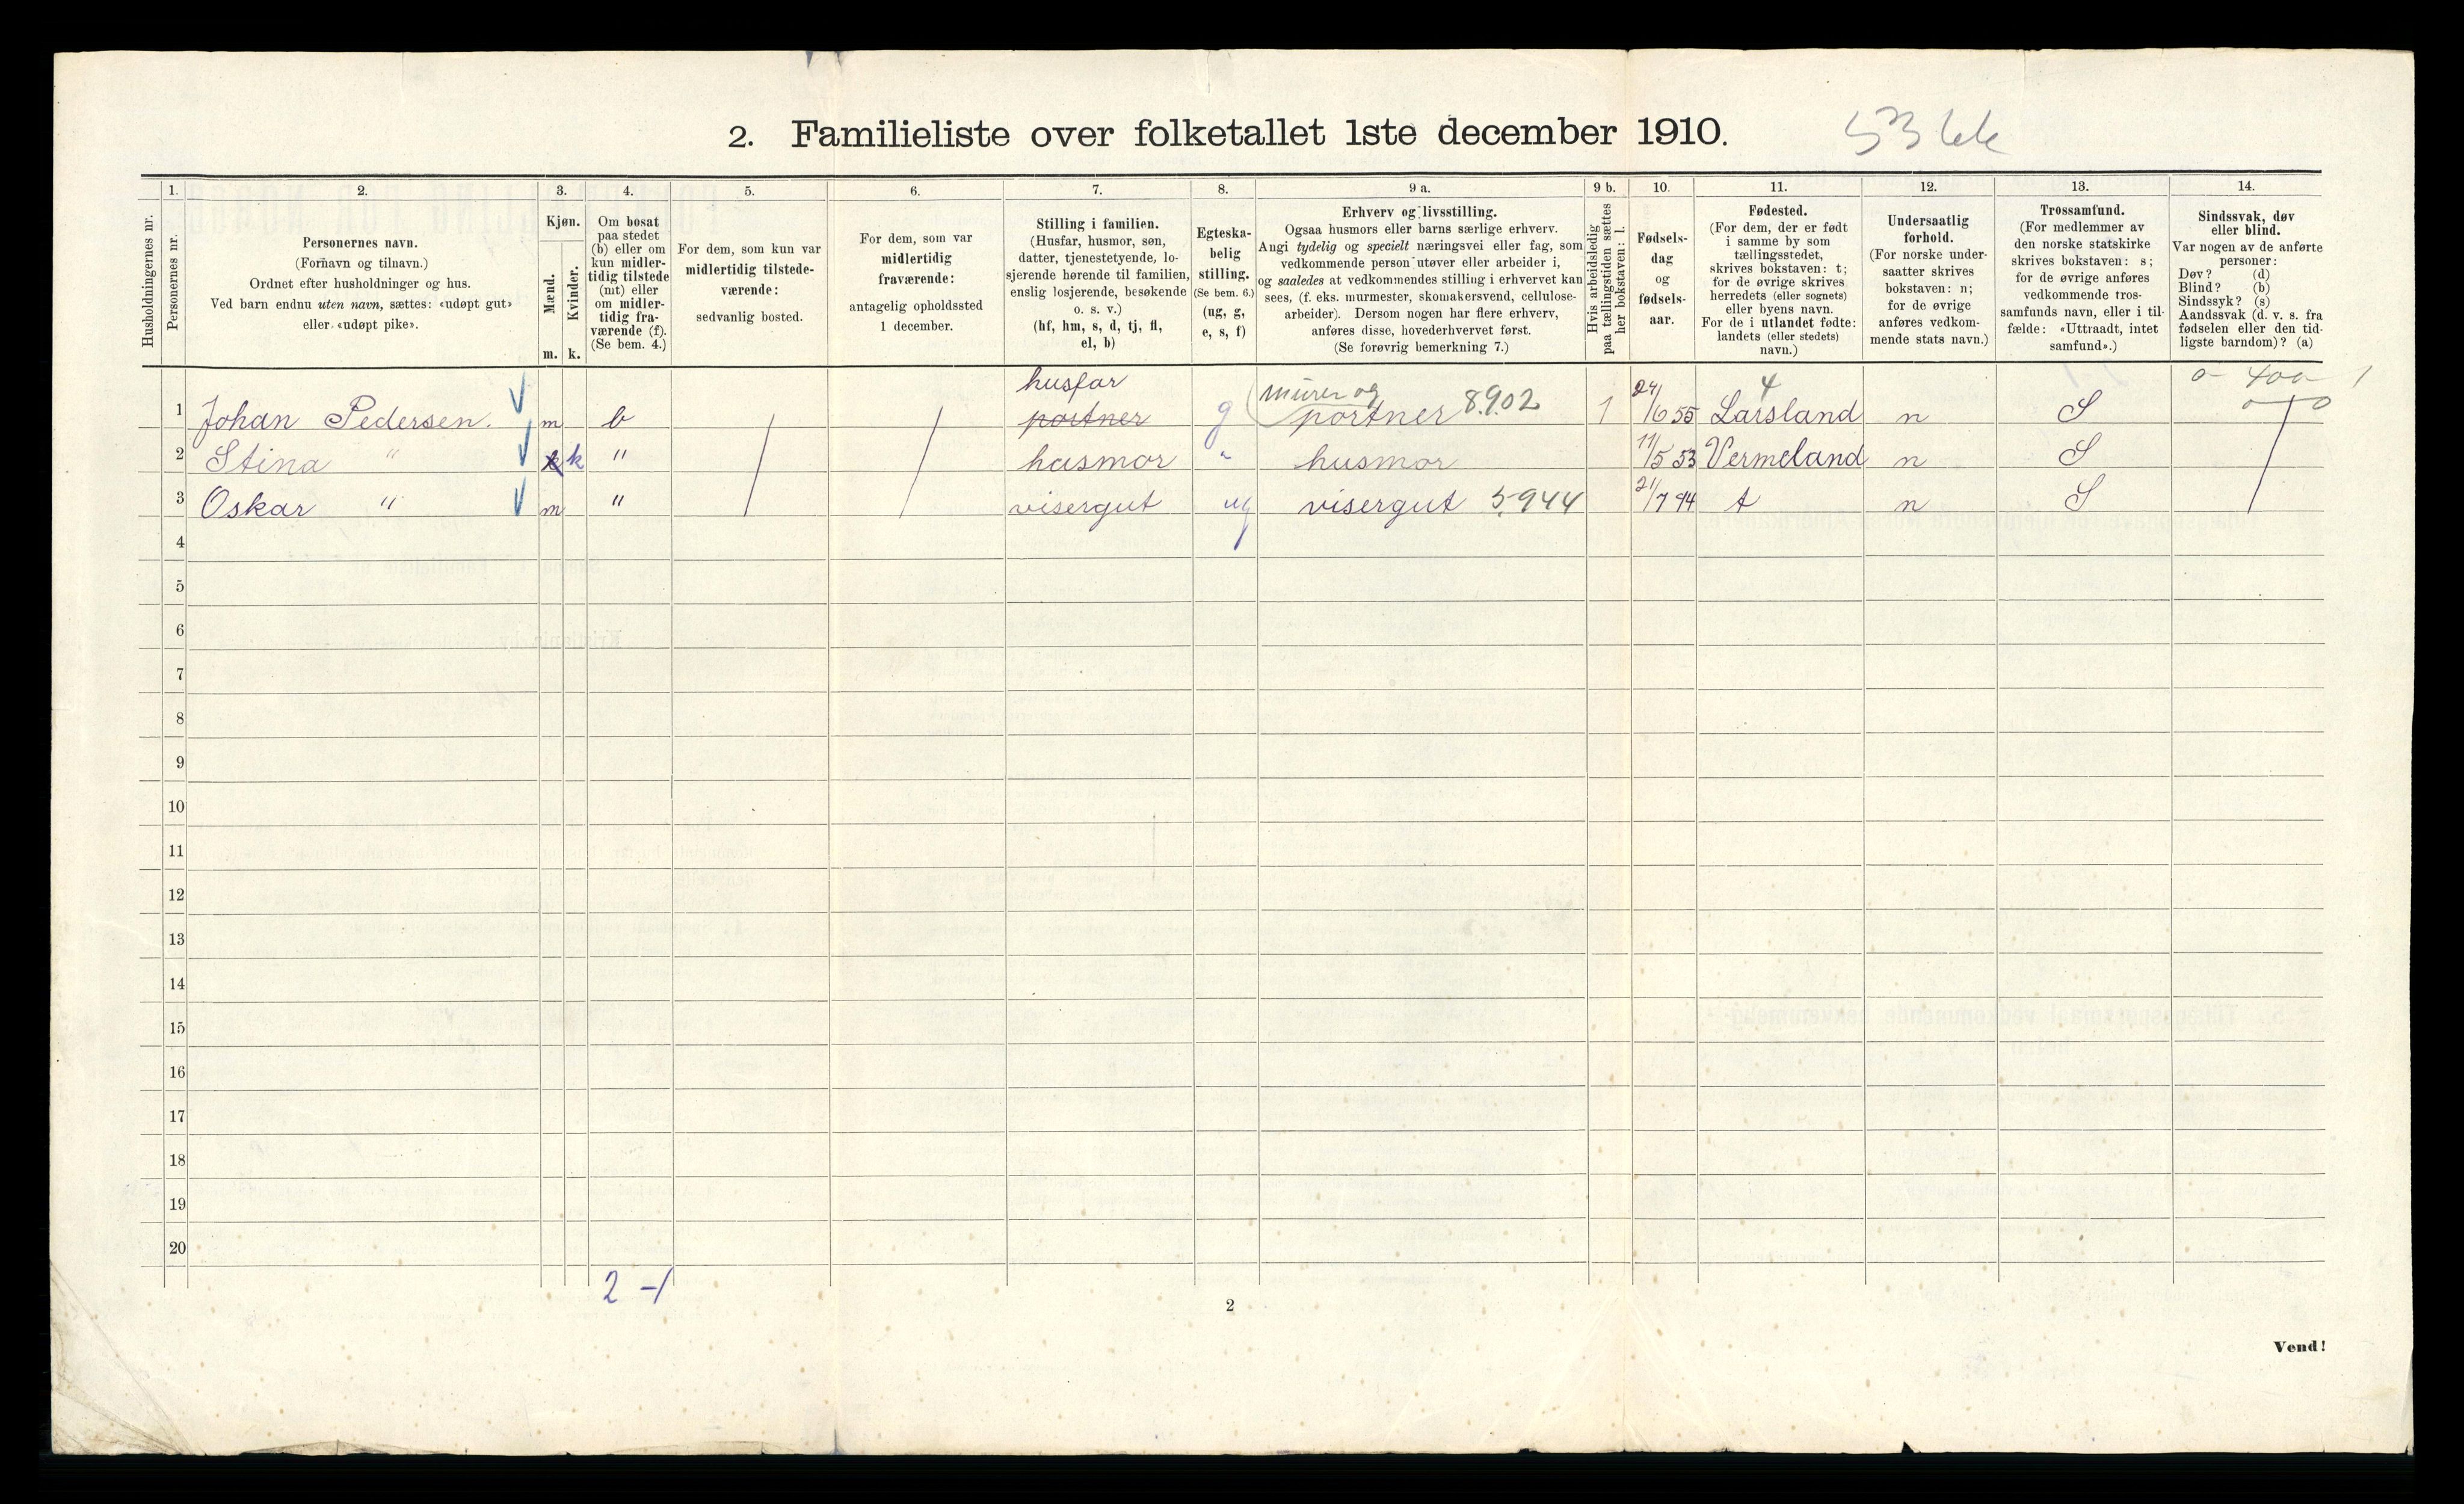 2. Familieliste over folketallet 1ste december 1910.
Husholdningernes nr.
1.
Personernes nr.
2.
Personernes navn.
(Fornavn og tilnavn.)
Ordnet efter husholdninger og hus.
Ved barn endnu uten navn, sættes: «udøpt gut»
eller «udøpt pike».
3.
Kjøn.
Mænd.
Kvinder.
m. k.
4.
Om bosat
paa stedet
(b) eller om
kun midler-
tidig tilstede
(mt) eller
om midler-
tidig fra-
værende (f).
(Se bem. 4.)
5.
For dem, som kun var
midlertidig tilstede-
værende:
sedvanlig bosted.
6.
For dem, som var
midlertidig
fraværende:
antagelig opholdssted
1 december.
7.
Stilling i familien.
(Husfar, husmor, søn,
datter, tjenestetyende, lo-
sjerende hørende til familien,
enslig losjerende, besøkende
o. s. v.)
(hf, hm, s, d, tj, fl,
el, b)
8.
Egteska-
belig
stilling.
(Se bem. 6.)
(ug, g,
e, s, f)
9 a.
Erhverv og livsstilling.
Ogsaa husmors eller barns særlige erhverv.
Angi tydelig og specielt næringsvei eller fag, som
vedkommende person utøver eller arbeider i,
og saaledes at vedkommendes stilling i erhvervet kan
sees, (f. eks. murmester, skomakersvend, cellulose-
arbeider). Dersom nogen har flere erhverv,
anføres disse, hovederhvervet først.
(Se forøvrig bemerkning 7.)
9 b.
Hvis arbeidsledig
paa tællingstiden sættes
her bokstaven: l.
10.
Fødsels-
dag
og
fødsels-
aar.
11.
Fødested.
(For dem, der er født
i samme by som
tællingsstedet,
skrives bokstaven: t;
for de øvrige skrives
herredets (eller sognets)
eller byens navn.
For de i utlandet fødte:
landets (eller stedets)
navn.)
12.
Undersaatlig
forhold.
(For norske under-
saatter skrives
bokstaven: n;
for de øvrige
anføres vedkom-
mende stats navn.)
13.
Trossamfund.
(For medlemmer av
den norske statskirke
skrives bokstaven: s;
for de øvrige anføres
vedkommende tros-
samfunds navn, eller i til-
fælde: «Uttraadt, intet
samfund».)
14.
Sindssvak, døv
eller blind.
Var nogen av de anførte
personer:
Døv? (d)
Blind? (b)
Sindssyk? (s)
Aandssvak (d. v. s. fra
fødselen eller den tid-
ligste barndom)? (a)
husfar murer og 4 0 - 400 - 1
1 Johan Pedersen. m b portner g portner 8.902 1 24/6 55 Larsland n S 0 - 0
2 Stina " k k " husmor " husmor 11/5 53 Vermeland n S
3 Oskar " m " visergut ug visergut 5.944 21/7 94 t n S
4
5
6
7
8
9
10
11
12
13
14
15
16
17
18
19
20
2 - 1
2
Vend!